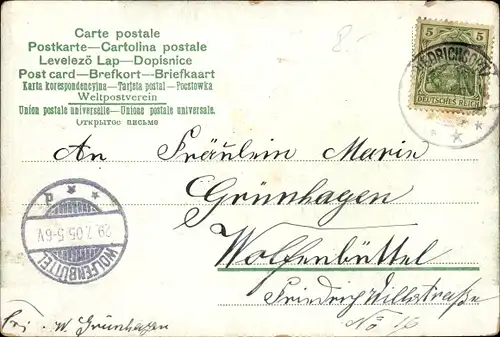 Carte postale
Postkarte—Cartolina postale
Levelező Lap—Dopisnice
Post card—Brefkort—Briefkaart
Karta korespondencyjna—Tarjeta postal—Pocztowka
Weltpostverein
Union postale universelle—Unione postale universale.
Открытое письмо
8.-
5 5
DEUTSCHES REICH
An Fräulein Marie
Grünhagen
Wolfenbüttel
No 16
WOLFENBÜTTEL
29.7.05.5-6.V
W. Grünhagen